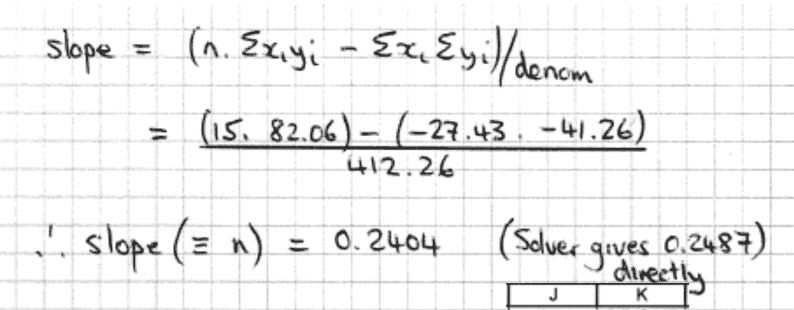 slope = (n. Σxᵢyᵢ - Σxᵢ Σyᵢ)/denom
= (15. 82.06) - (-27.43 . -41.26)
412.26
∴ slope (≡ n) = 0.2404 (Solver gives 0.2487)
directly
J K